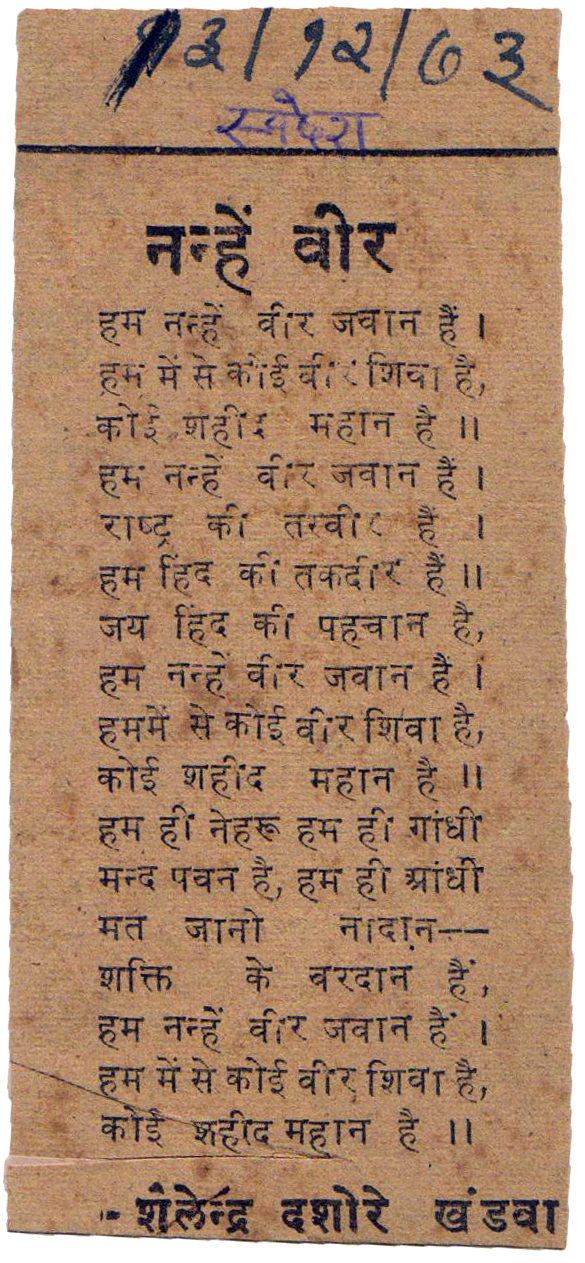 १३/१२/७३
स्वदेश
नन्हें वीर
हम नन्हें वीर जवान हैं ।
हम में से कोई वीर शिवा है,
कोई शहीद महान है ॥
हम नन्हें वीर जवान हैं ।
राष्ट्र की तस्वीर हैं ।
हम हिंद की तकदीर हैं ॥
जय हिंद की पहचान है,
हम नन्हें वीर जवान हैं ।
हममें से कोई वीर शिवा है,
कोई शहीद महान है ॥
हम ही नेहरू हम ही गांधी
मन्द पवन है, हम ही आंधी
मत जानो नादान--
शक्ति के वरदान हैं,
हम नन्हें वीर जवान हैं ।
हम में से कोई वीर शिवा है,
कोई शहीद महान है ॥
- शैलेन्द्र दशोरे खंडवा